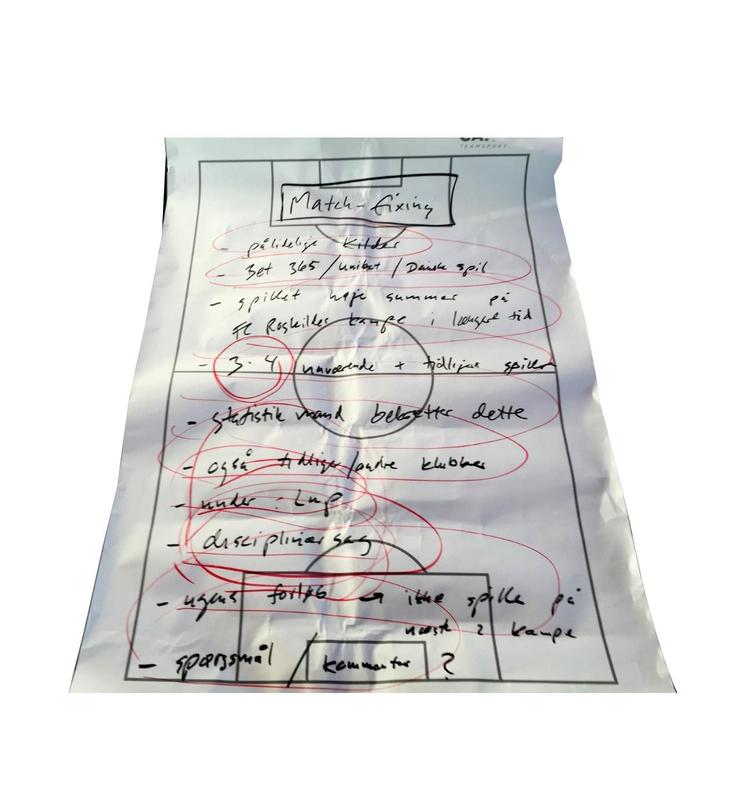 TEAMSPORT
Match-fixing
- pålidelige kilder
- Bet 365/unibet/Danske spil
- spillet høje summer på
FC Roskildes kampe i længere tid
- 3-4 nuværende + tidligere spillere
- statistik mand bekræfter dette
- også tidligere/andre klubber
- under: Lup
- disciplinær sag
- ugens forløb → ikke spille på
næste 2 kampe
- spørgsmål / kommentar ?